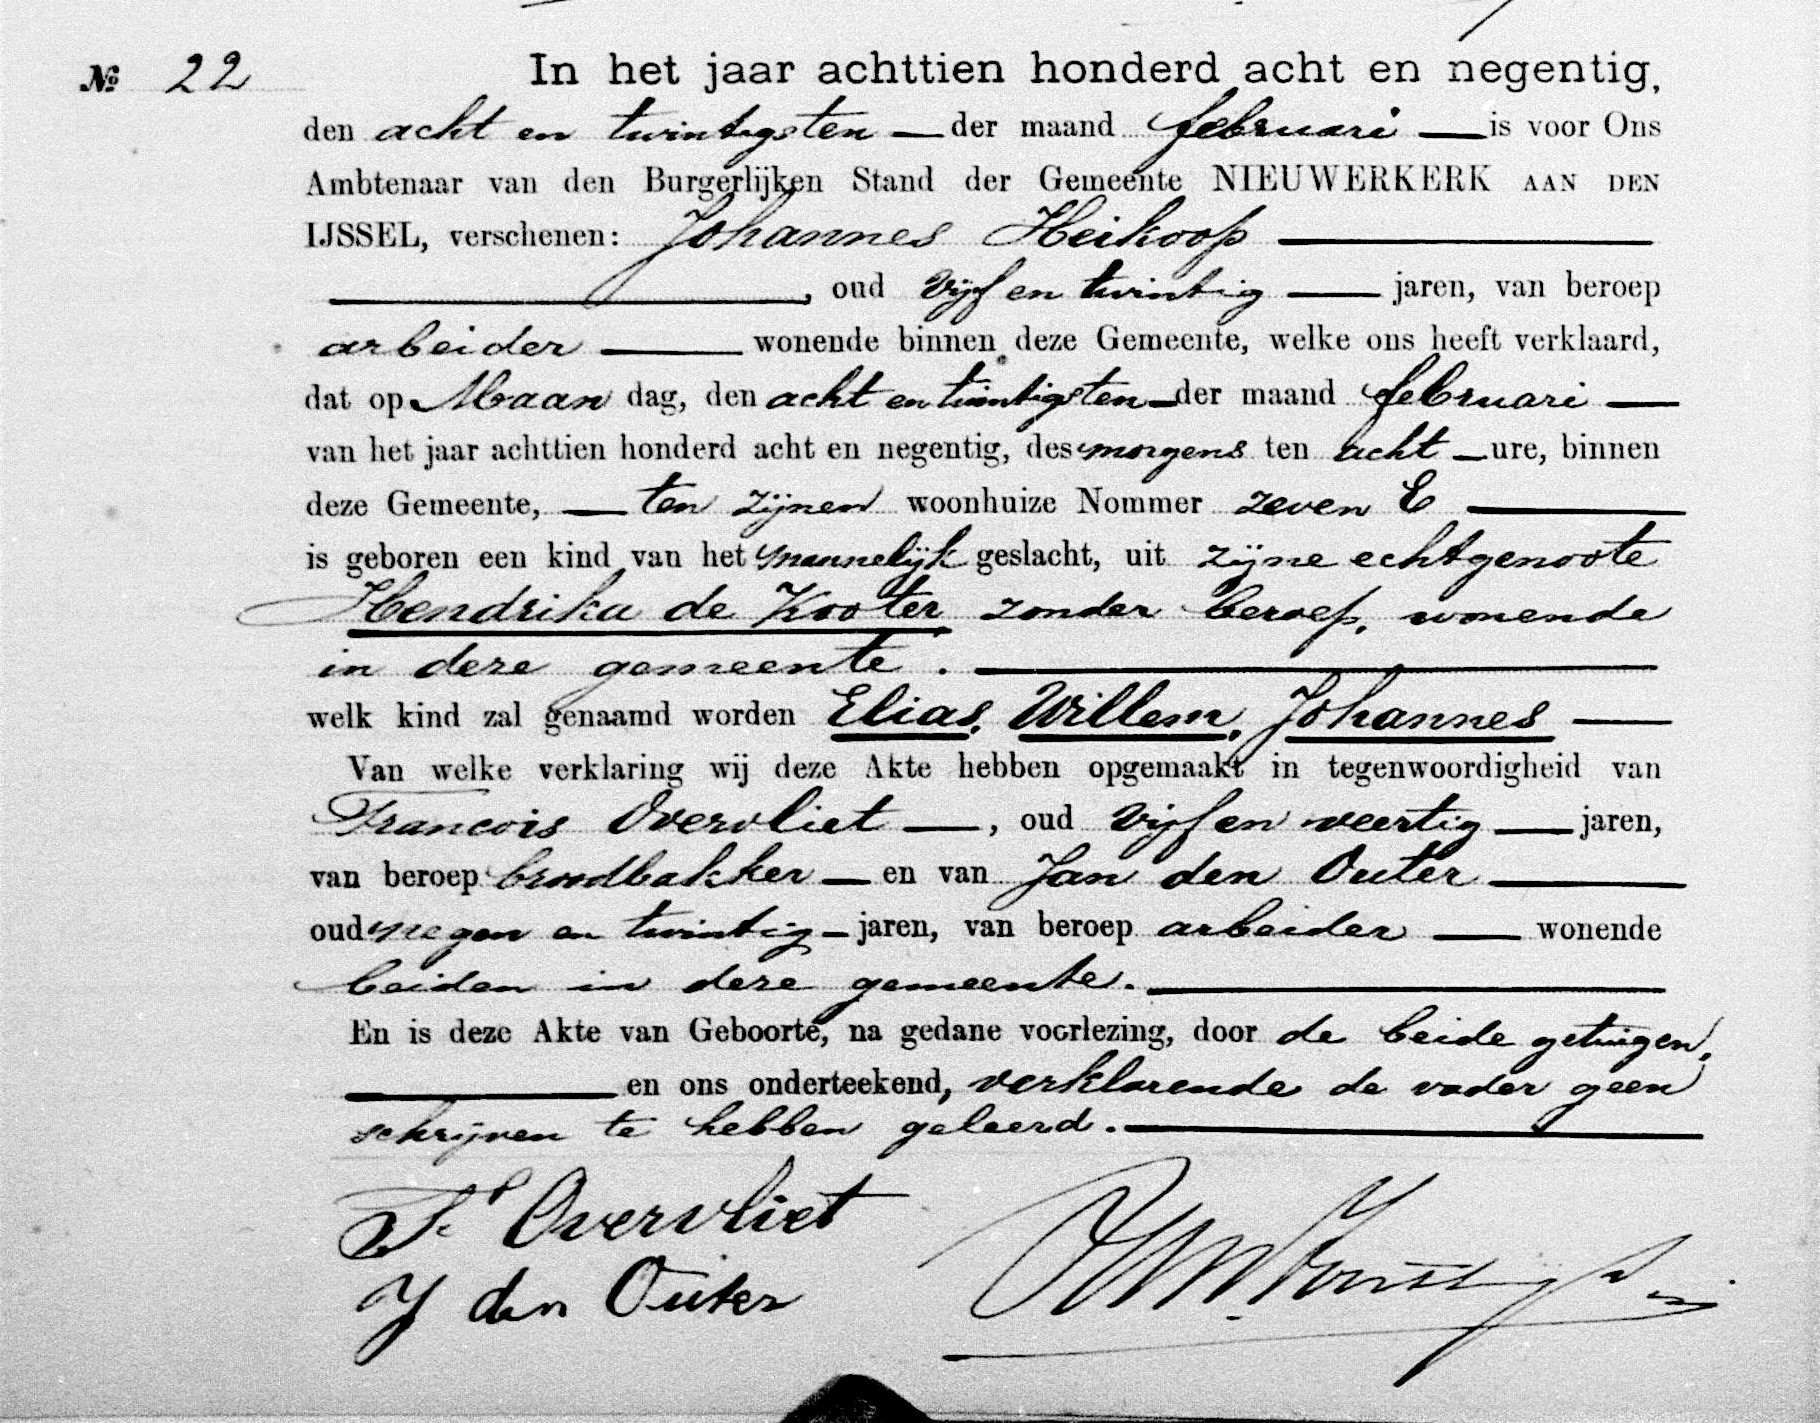 № 22 In het jaar achttien honderd acht en negentig,
den acht en twintigsten — der maand februari — is voor Ons
Ambtenaar van den Burgerlijken Stand der Gemeente NIEUWERKERK AAN DEN
IJSSEL, verschenen: Johannes Heikoop —
—, oud vijf en twintig — jaren, van beroep
arbeider — wonende binnen deze Gemeente, welke ons heeft verklaard,
dat op Maan dag, den acht en twintigsten — der maand februari —
van het jaar achttien honderd acht en negentig, des morgens ten acht — ure, binnen
deze Gemeente, — ten zijnen woonhuize Nommer zeven E —
is geboren een kind van het mannelijk geslacht, uit zijne echtgenoote
Hendrika de Kooter zonder beroep, wonende
in deze gemeente. —
welk kind zal genaamd worden Elias, Willem, Johannes —
Van welke verklaring wij deze Akte hebben opgemaakt in tegenwoordigheid van
Francois Overvliet —, oud vijf en veertig — jaren,
van beroep broodbakker — en van Jan den Outer —
oud negen en twintig — jaren, van beroep arbeider — wonende
beiden in deze gemeente. —
En is deze Akte van Geboorte, na gedane voorlezing, door de beide getuigen,
— en ons onderteekend, verklarende de vader geen
schrijven te hebben geleerd. —
Fs Overvliet
J den Outer